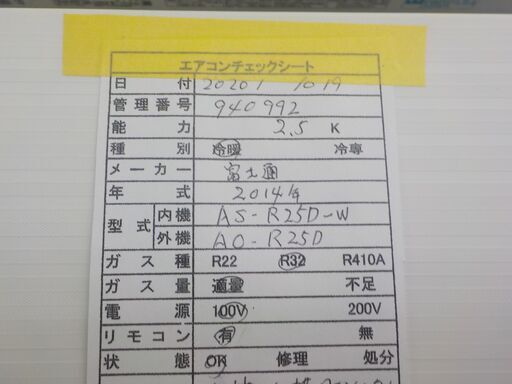 エアコンチェックシート
日付 2020 / 10.19
管理番号 940992
能力 2.5 K
種別 冷暖 冷専
メーカー 富士通
年式 2014年
型式 内機 AS-R25D-W
外機 AO-R25D
ガス種 R22 R32 R410A
ガス量 適量 不足
電源 100V 200V
リモコン 有 無
状態 OK 修理 処分